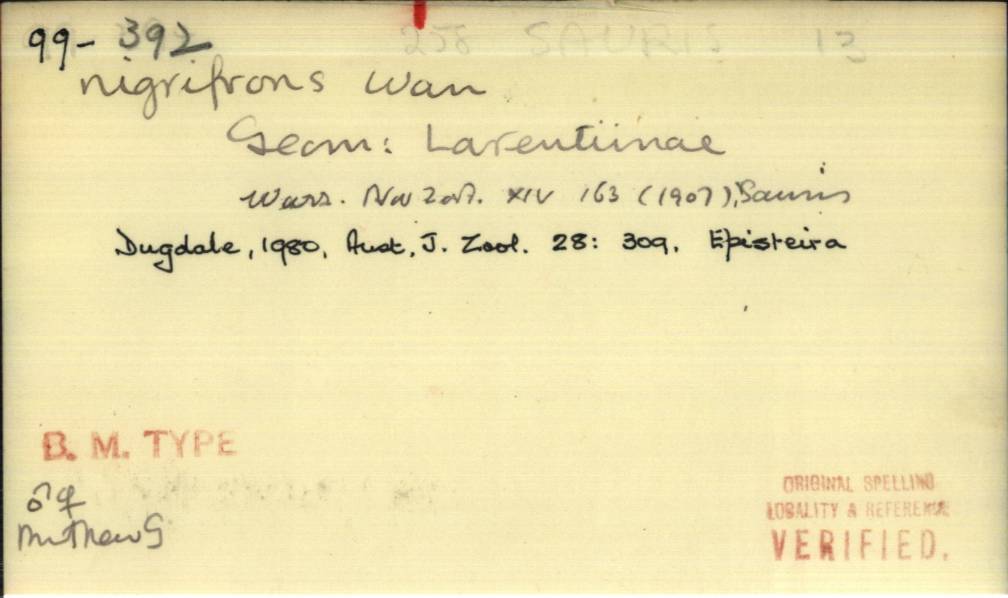 99- 392 258 SAURIS 13
nigrifrons Warr
Geom: Larentiinae
Warr. Nov Zool. XIV 163 (1907), Sauris
Dugdale, 1980, Aust. J. Zool. 28: 309. Episteira
B. M. TYPE
♂♀
Mathew G
ORIGINAL SPELLING
LOCALITY & REFERENCE
VERIFIED.